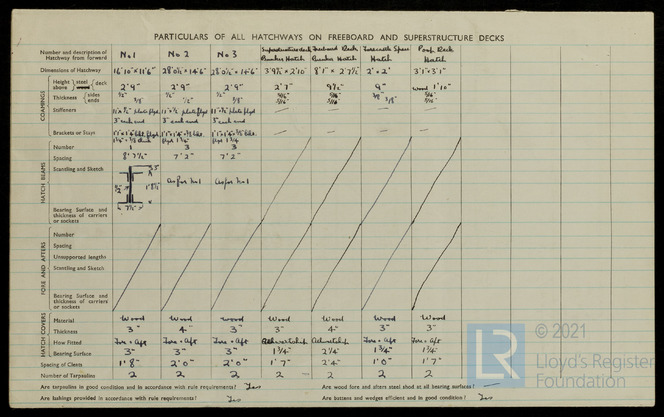 PARTICULARS OF ALL HATCHWAYS ON FREEBOARD AND SUPERSTRUCTURE DECKS
Number and description of Hatchway from forward No 1 No 2 No 3 Superstructure deck Bunker Hatch Freeboard Deck Bunker Hatch Forecastle Space Hatch Poop Deck Hatch
Dimensions of Hatchway 16'10"×11'6" 28'0½"×14'6" 28'0½"×14'6" 3'9½"×2'10" 8'1"× 2'7½" 2'×2' 3'1"×3'1"
COAMINGS
Height above steel wood deck 2'9" 2'9" 2'9" 2'7" 9½" 9" wood 1'10"
Thickness sides ends
Stiffeners
3" each end 3" each end 3" each end
Brackets or Stays
HATCH BEAMS
Number 1 3 3
Spacing 8'7½" 7'2" 7'2"
Scantling and Sketch As for No 1 As for No 1
Bearing Surface and thickness of carriers or sockets
FORE AND AFTERS
Number
Spacing
Unsupported lengths
Scantling and Sketch
Bearing Surface and thickness of carriers or sockets
HATCH COVERS
Material Wood Wood Wood Wood Wood Wood Wood
Thickness 3" 4" 3" 3" 4" 3" 3"
How Fitted Fore + Aft Fore + Aft Fore + Aft Athwartship Athwartship Fore + Aft Fore + Aft
Bearing Surface 3" 3" 3" 1¾" 2¼" 1¾" 1¾"
Spacing of Cleats 1'8" 2'0" 2'0" 1'7" 2'4" 1'0" 1'7"
Number of Tarpaulins 2 2 2 2 2 2 2
Are tarpaulins in good condition and in accordance with rule requirements? Yes Are wood fore and afters steel shod at all bearing surfaces? —
Are lashings provided in accordance with rule requirements? Yes Are battens and wedges efficient and in good condition? Yes
LR
© 2021
Lloyd's Register
Foundation